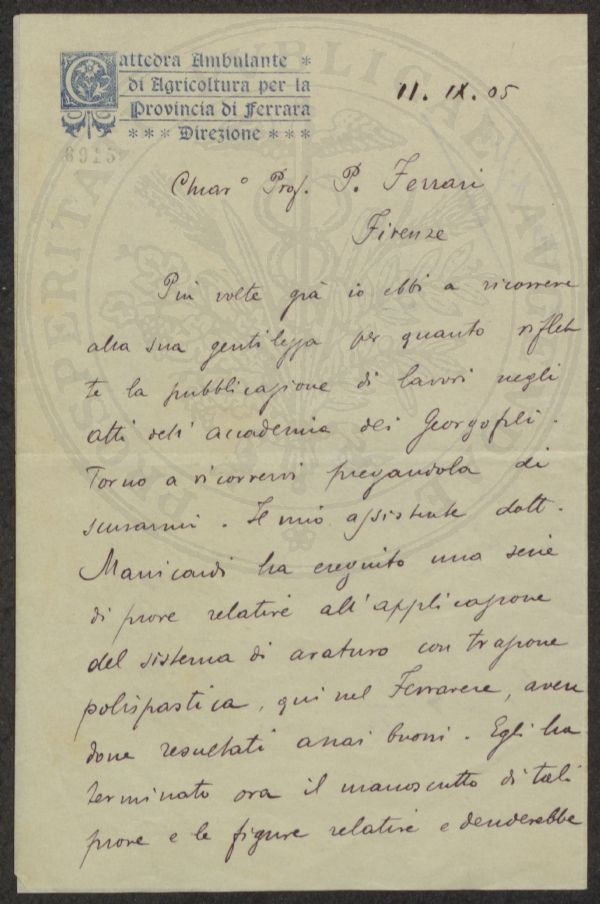 Cattedra Ambulante *
di Agricoltura per la
Provincia di Ferrara
* * * Direzione * * *
6915
11. IX. 05
Chiar° Prof. P. Ferrari
Firenze
Più volte già io ebbi a ricorrere
alla sua gentilezza per quanto riflet
te la pubblicazione di lavori negli
atti dell' accademia dei Georgofili.
Torno a ricorrervi pregandola di
scusarmi. Il mio assistente dott.
Manicardi ha eseguito una serie
di prove relative all'applicazione
del sistema di aratura con trazione
polispastica, qui nel Ferrarese, aven
done resultati assai buoni. Egli ha
terminato ora il manoscritto di tali
prove e le figure relative e desiderebbe
PROSPERITATI PUBLICAE AUGENDAE